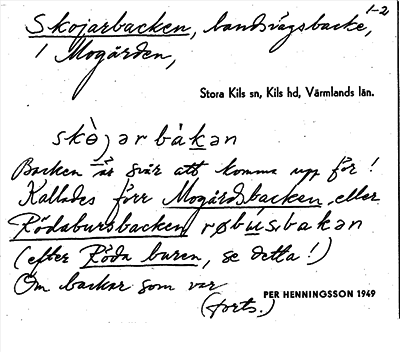 1-2
Skojarbacken, landsvägsbacke,
i Mogården,
Stora Kils sn, Kils hd, Värmlands län.
skò̱jər båkən
Backen är svår att komma upp för!
Kallades förr Mogårdsbacken, eller
Rödabursbacken røbúsbakən
(efter Röda buren, se detta!)
Om backar som var
(forts.)
PER HENNINGSSON 1949